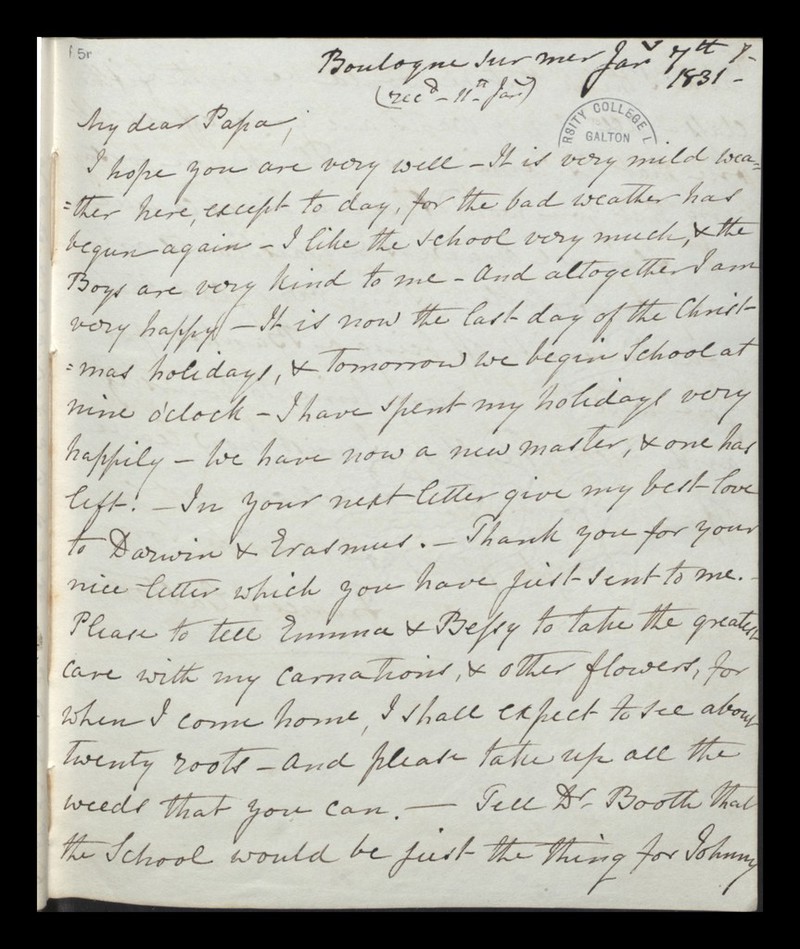 5r
Boulogne sur mer Jary 7th
1831 -
(recd - 11th Jary)
RSITY COLLEGE L
GALTON
My dear Papa,
I hope you are very well - It is very mild wea=
=ther here, except to day, for the bad weather has
begun again - I like the school very much, & the
Boys are very kind to me - And altogether I am
very happy - It is now the last day of the Christ-
=mas holidays, & tomorrow we begin School at
nine o'clock - I have spent my holidays very
happily - We have now a new master, & one has
left. - In your next letter give my best love
to Darwin & Erasmus. - Thank you for your
nice letter which you have just sent to me. -
Please to tell Emma & Bessy to take the greatest
care with my carnations, & other flowers, for
when I come home, I shall expect to see about
twenty roots - And please take up all the
weeds that you can. - Tell Dr. Booth that
the School would be just the thing for Johnny